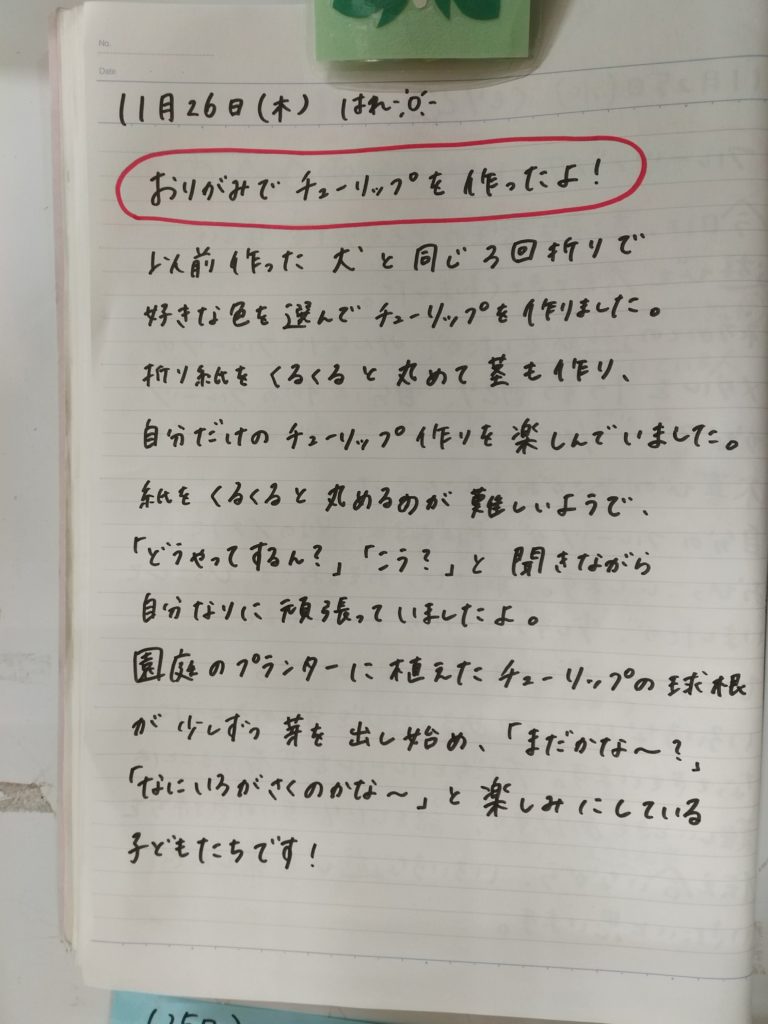 No.
Date
11月26日(木) はれ
おりがみでチューリップを作ったよ!
以前作った犬と同じ3回折りで
好きな色を選んでチューリップを作りました。
折り紙をくるくると丸めて茎も作り、
自分だけのチューリップ作りを楽しんでいました。
紙をくるくると丸めるのが難しいようで、
「どうやってするん?」「こう?」と聞きながら
自分なりに頑張っていましたよ。
園庭のプランターに植えたチューリップの球根
が少しずつ芽を出し始め、「まだかな〜?」
「なにいろがさくのかな〜」と楽しみにしている
子どもたちです!